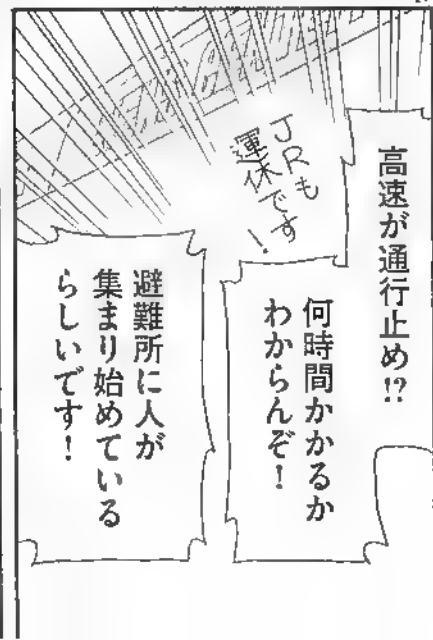 高速が通行止め!?
JRも
運休です!
何時間かかるか
わからんぞ!
避難所に人が
集まり始めている
らしいです!